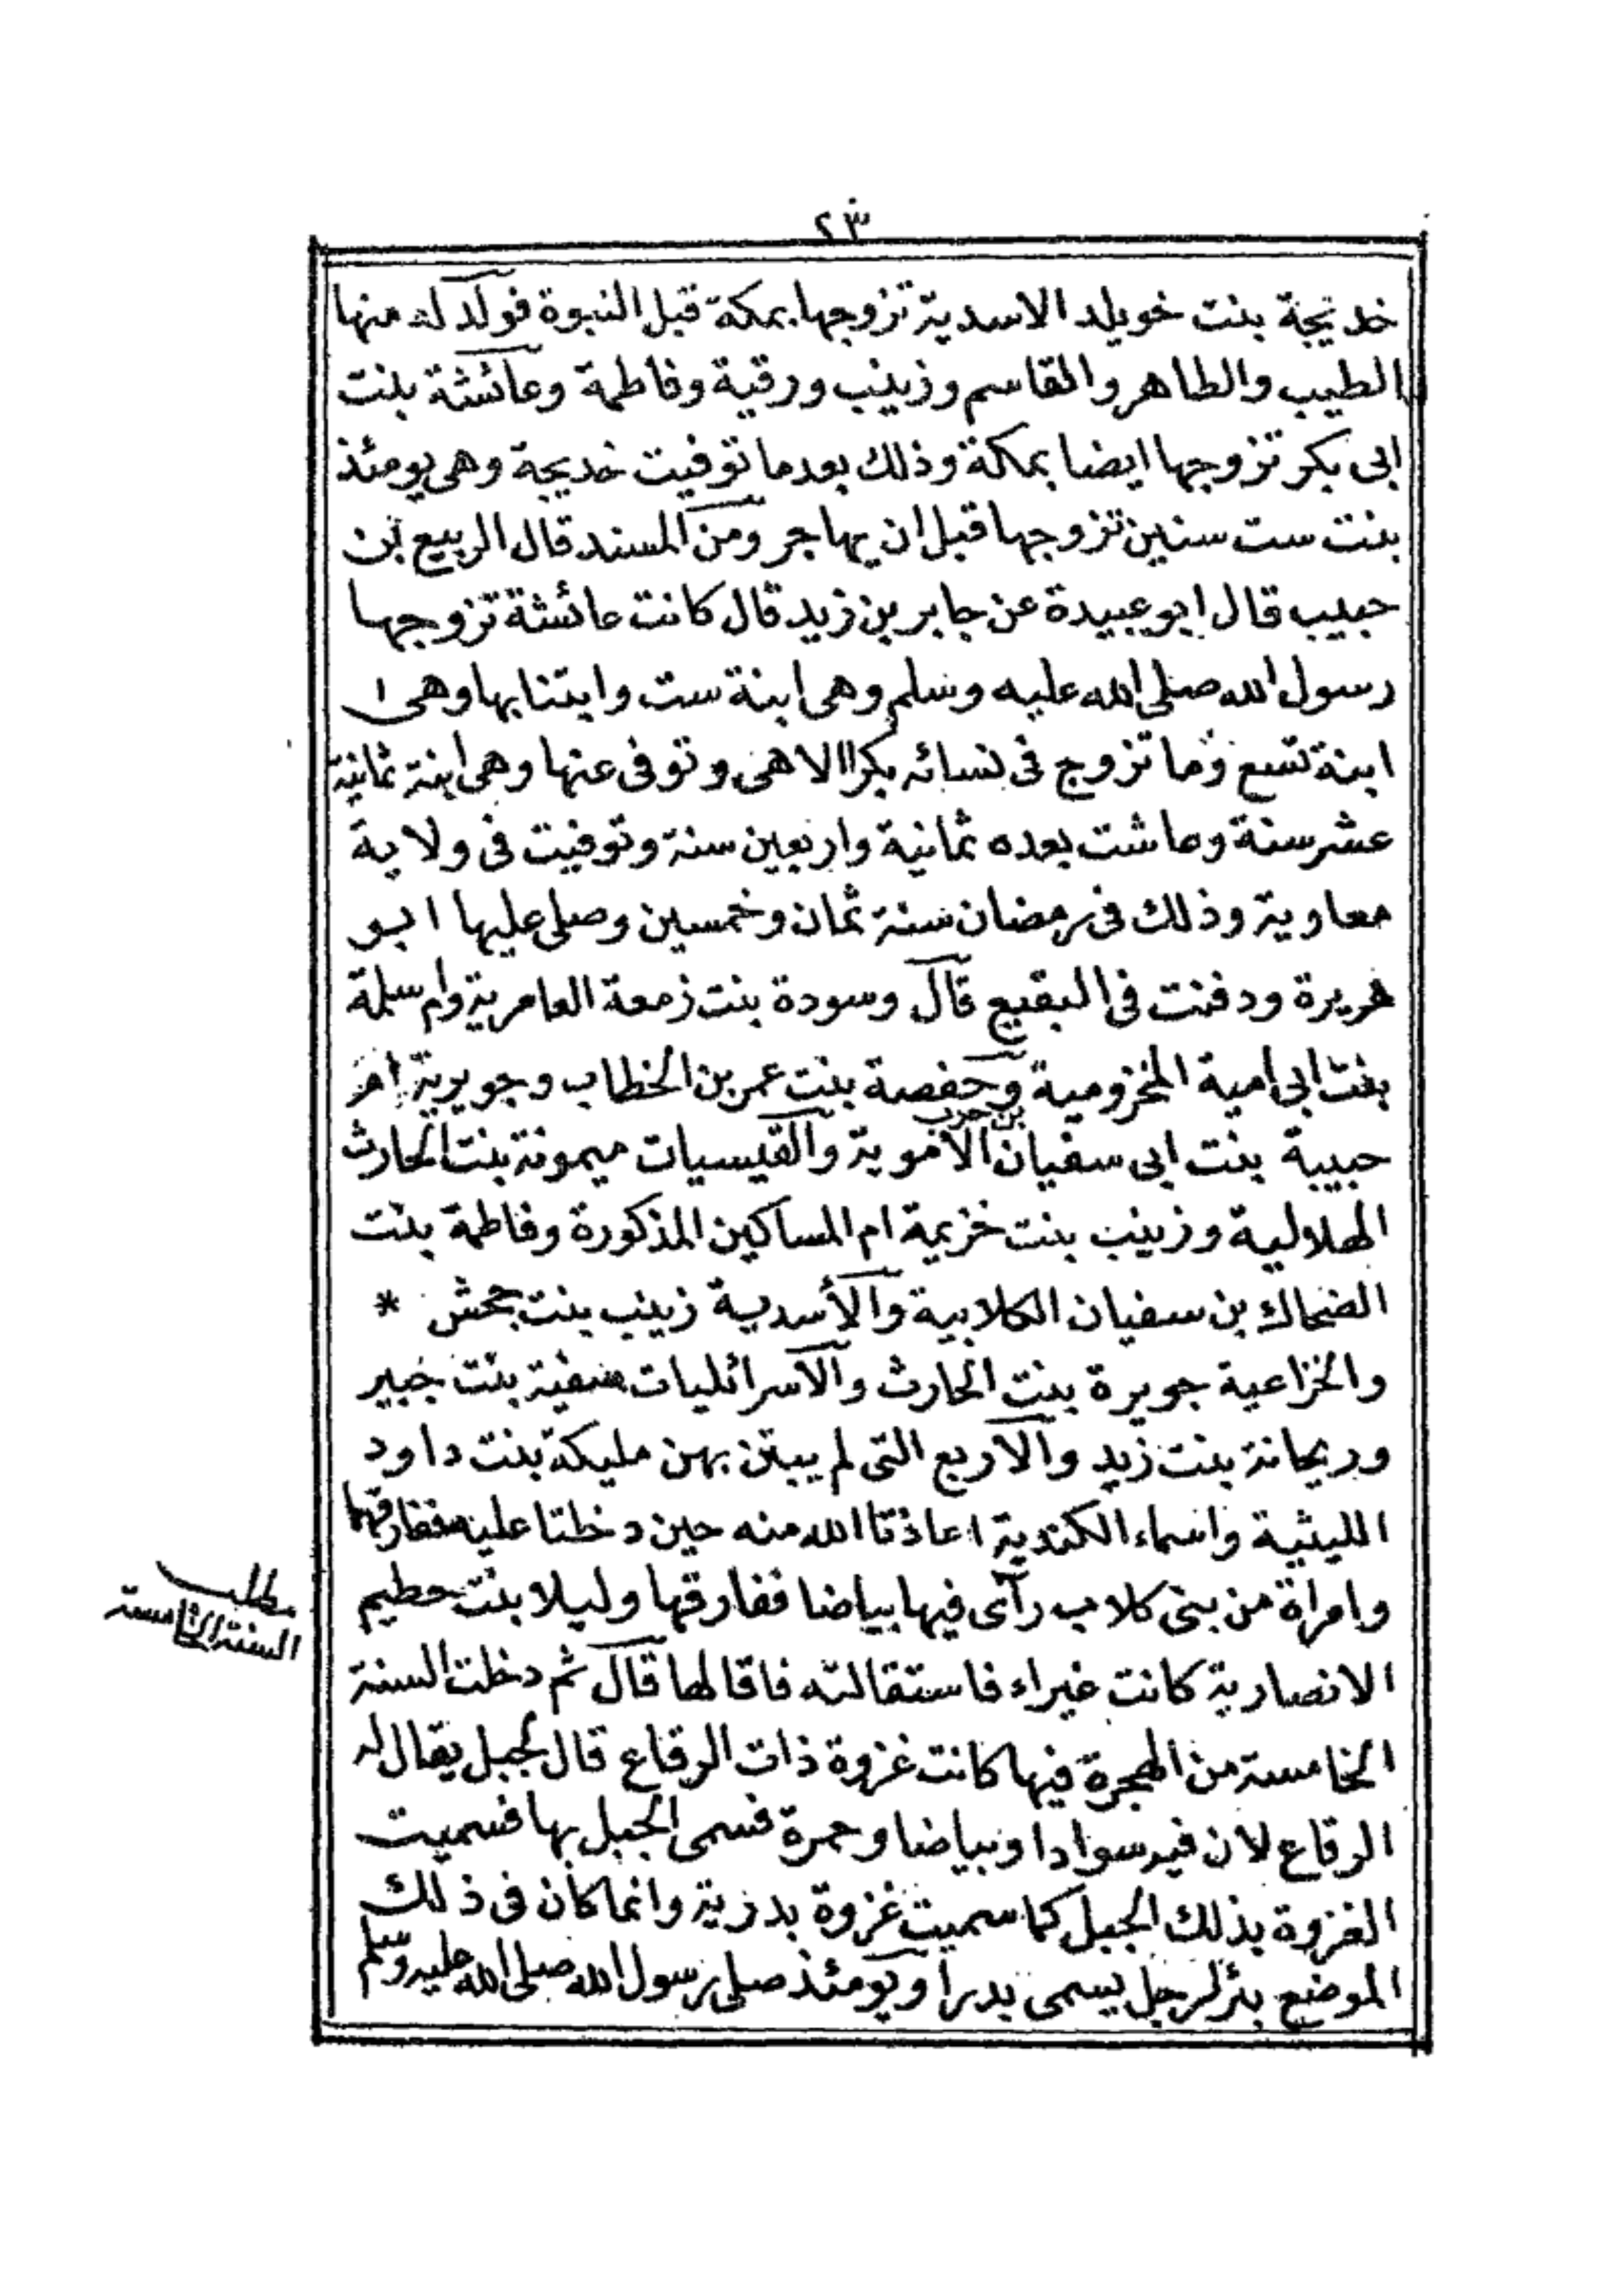 ٢٣
خديجة بنت خويلد الاسدية تزوجها بمكة قبل النبوة فولد له منها
الطيب والطاهر والقاسم وزينب ورقية وفاطمة وعائشة بنت
ابى بكر تزوجها ايضا بمكة وذلك بعدما توفيت خديجة وهى يومئذ
بنت ست سنين تزوجها قبل ان يهاجر ومن المسند قال الربيع بن
حبيب قال ابو عبيدة عن جابر بن زيد قال كانت عائشة تزوجها
رسول الله صلى الله عليه وسلم وهى ابنة ست وابتنا بها وهى ا
ابنة تسع وما تزوج فى نسائه بكرا الا هى وتوفى عنها وهى ابنة ثمانية
عشر سنة وعاشت بعده ثمانية واربعين سنة وتوفيت فى ولاية
معاوية وذلك فى رمضان سنة ثمان وخمسين وصلى عليها ابو
هريرة ودفنت فى البقيع قال وسودة بنت زمعة العامرية وام سلمة
بنت ابى امية المخزومية وحفصة بنت عمر بن الخطاب وجويرية ام
حبيبة بنت ابى سفيان بن حرب الاموية والقيسيات ميمونة بنت الحارث
الهلالية وزينب بنت خزيمة ام المساكين المذكورة وفاطمة بنت
الضحاك بن سفيان الكلابية والأسدية زينب بنت جحش *
والخزاعية جويرة بنت الحارث والاسرائليات صفية بنت جبير
وريحانة بنت زيد والاربع التى لم يبتن بهن مليكة بنت داود
الليثية واسماء الكندية اعاذتا الله منه حين دخلتا عليه ففارقهما
وامراة من بنى كلاب رآى فيها بياضا ففارقها وليلا بنت حطيم
الانصارية كانت غيراء فاستقالته فاقالها قال ثم دخلت السنة
الخامسة من الهجرة فيها كانت غزوة ذات الرقاع قال لجبل يقال له
الرقاع لان فيه سوادا وبياضا وحمرة فسمى الجبل بها فسميت
الغزوة بذلك الجبل كما سميت غزوة بدر ية وانما كان فى ذلك
الموضع بئر لرجل يسمى بدرا ويومئذ صلى رسول الله صلى الله عليه وسلم
مطلب
السنة الخامسة